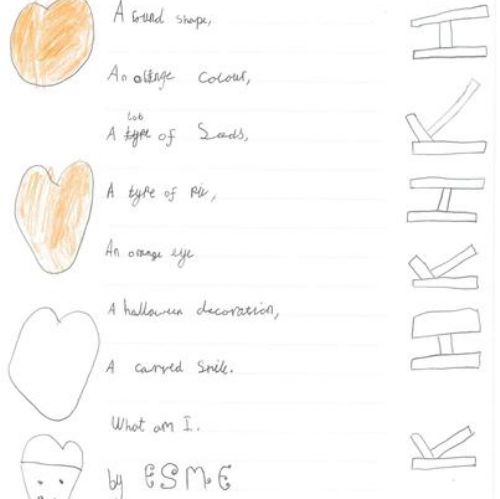 A round shape,
An orange colour,
A lob of Seeds,
A type of pie,
An orange eye
A halloween decoration,
A carved Smile.
What am I.
by ESME
H
K
H
K
H
K